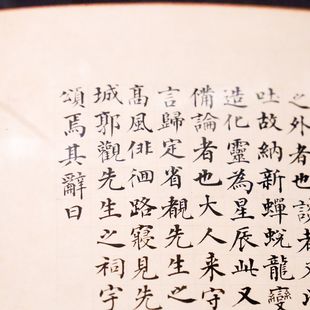 之外者也談者又
吐故納新蟬蛻龍變
造化靈為星辰此又
備論者也大人来守
言歸定省覩先生之
高風俳佪路寢見先
城郭觀先生之祠宇
頌焉其辭曰